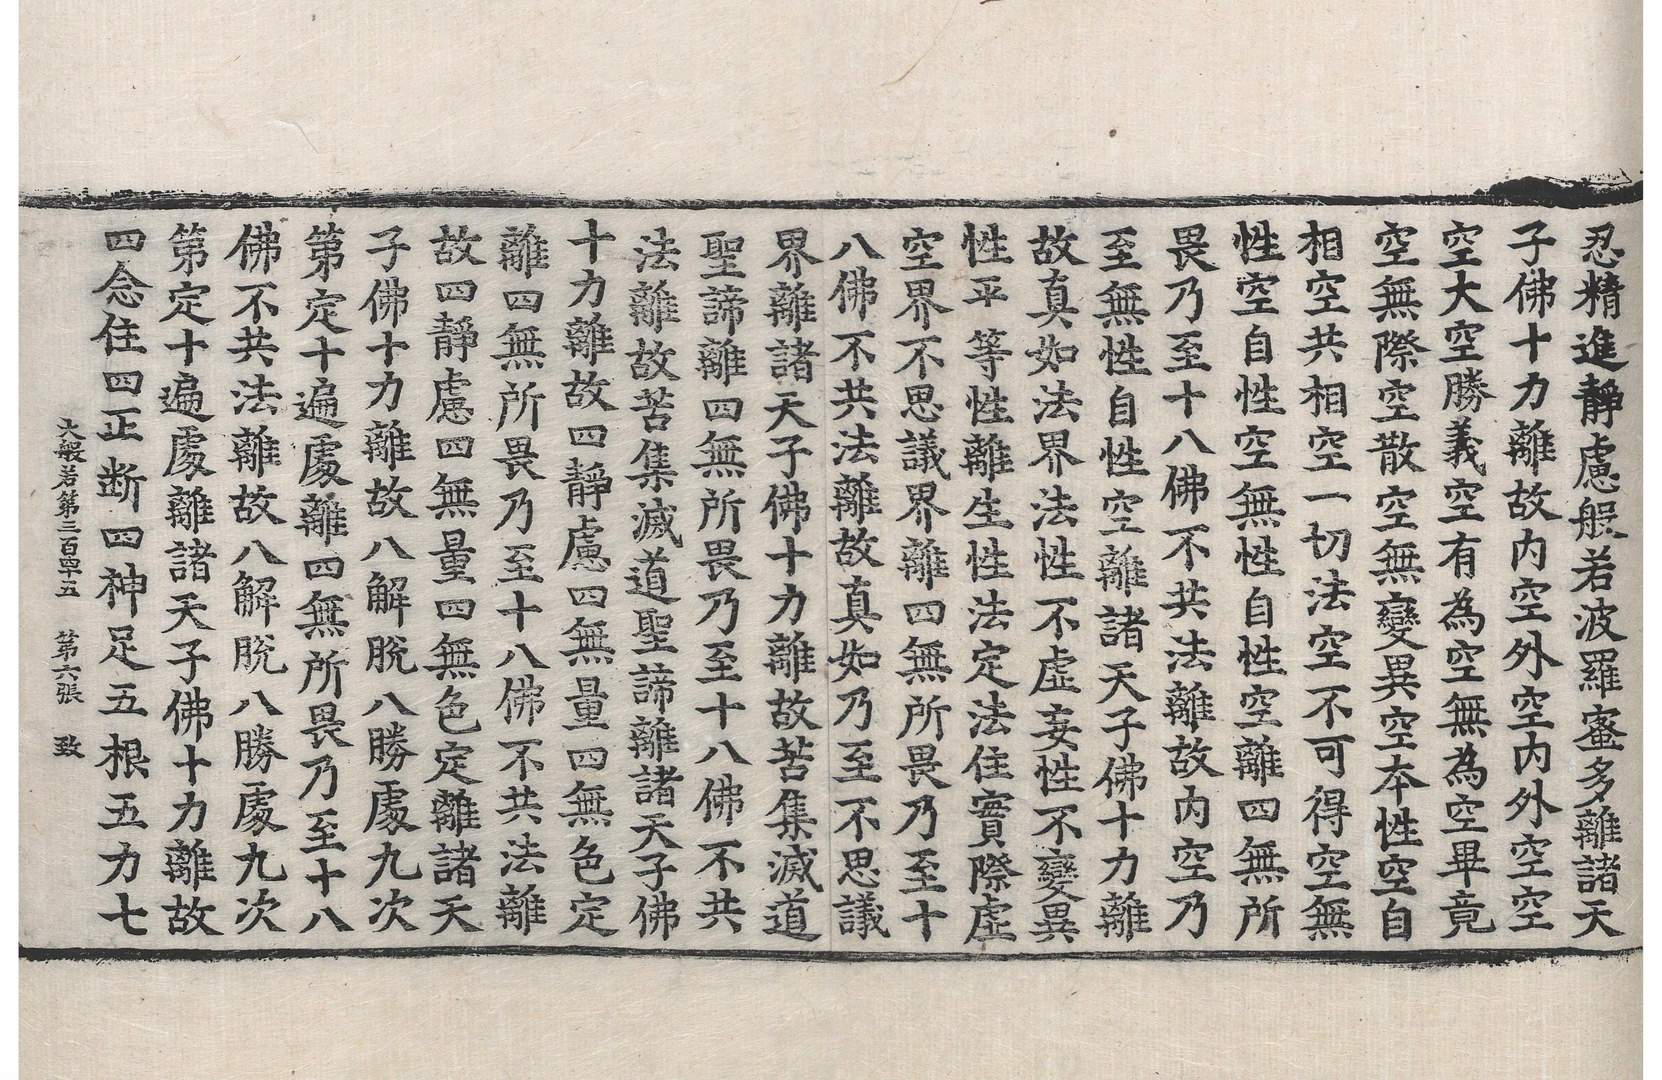 忍精進靜慮般若波羅蜜多離諸天
子佛十力離故内空外空内外空空
空大空勝義空有為空無為空畢竟
空無際空散空無變異空本性空自
相空共相空一切法空不可得空無
性空自性空無性自性空離四無所
畏乃至十八佛不共法離故内空乃
至無性自性空離諸天子佛十力離
故真如法界法性不虛妄性不變異
性平等性離生性法定法住實際虛
空界不思議界離四無所畏乃至十
八佛不共法離故真如乃至不思議
界離諸天子佛十力離故苦集滅道
聖諦離四無所畏乃至十八佛不共
法離故苦集滅道聖諦離諸天子佛
十力離故四靜慮四無量四無色定
離四無所畏乃至十八佛不共法離
故四靜慮四無量四無色定離諸天
子佛十力離故八解脫八勝處九次
第定十遍處離四無所畏乃至十八
佛不共法離故八解脫八勝處九次
第定十遍處離諸天子佛十力離故
四念住四正断四神足五根五力七
大般若第三百四十五 第六張 致